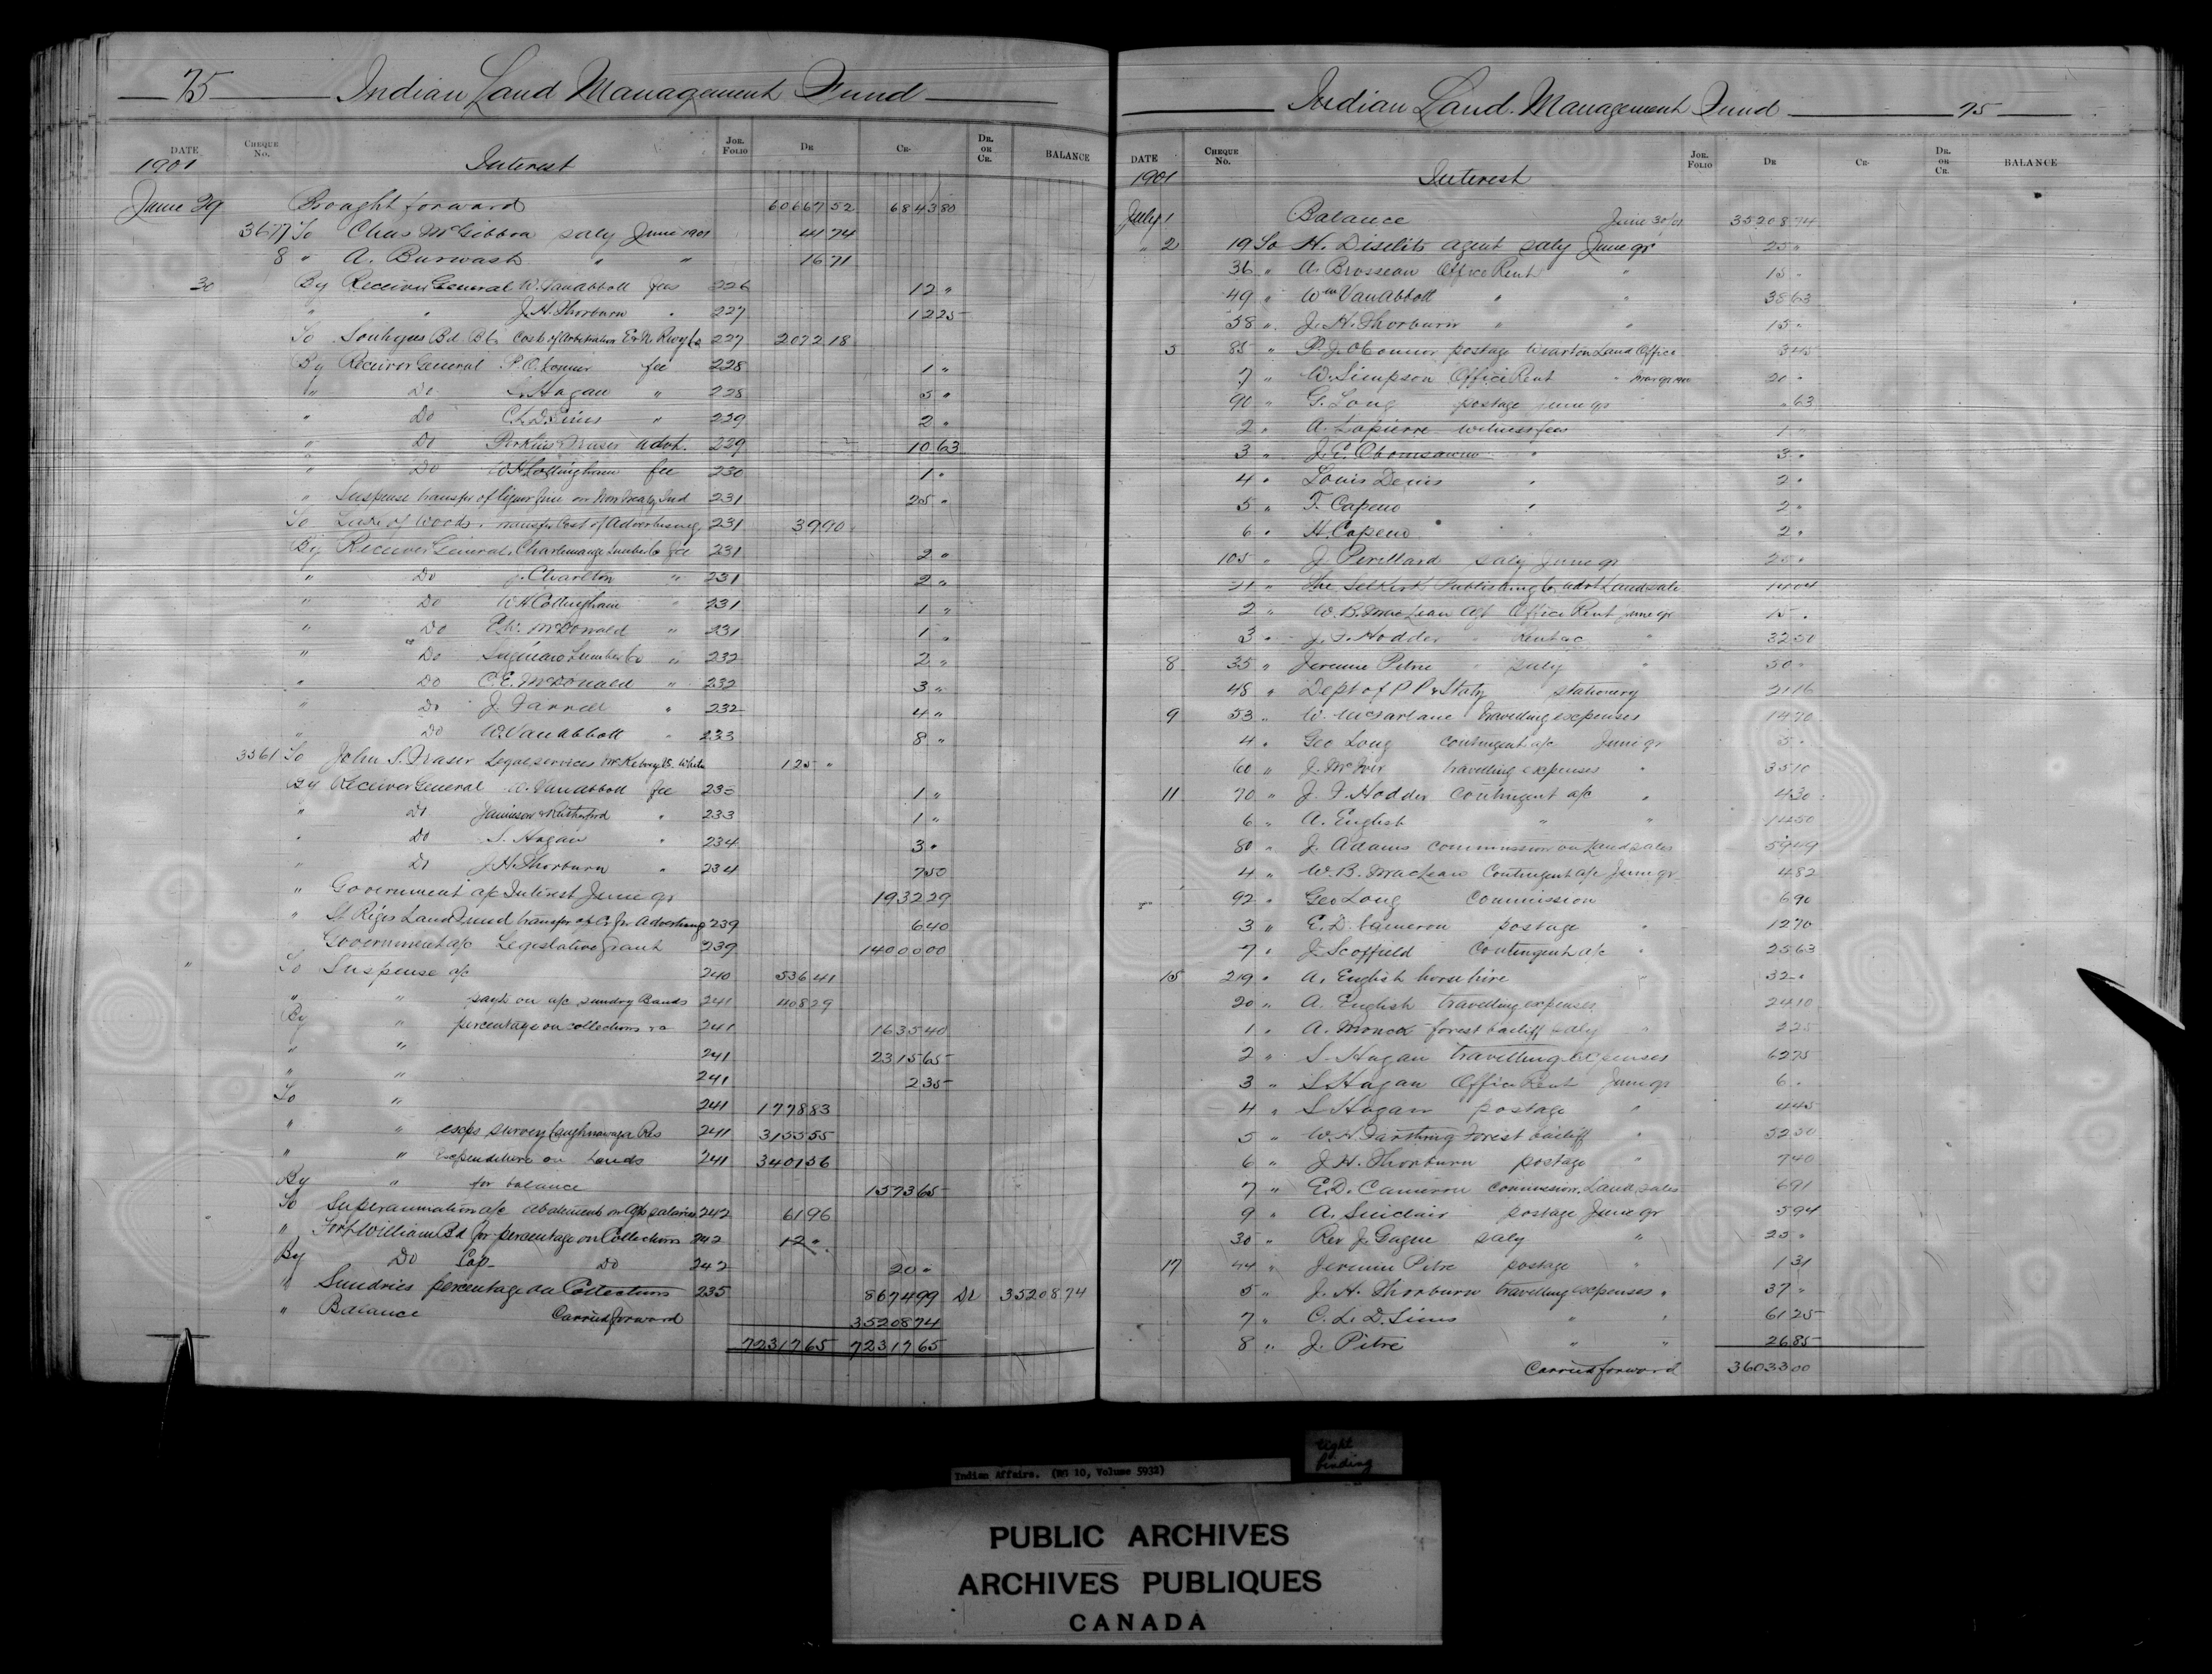 75 Indian Land Management Fund
DATE CHEQUE No. JOR. FOLIO DR CR. DR. OR CR. BALANCE
1901 Interest
June 29 Brought forward 60667 52 6843 80
3677 To Chas McGibbon saly June 1901 41 74
8 " A. Burwash " " 16 71
30 By Receiver General W. Van Abbott fees 226 12 "
" " J. H. Thorburn " 227 12 25
To Bd. Cost of Arbitration 227 2072 18
By Receiver General P. O. Connor fee 228 1 "
" Do S. Hagan " 228 5 "
" Do C. L. D. Sims " 229 2 "
" Do Perkins & Fraser advt. 229 10 63
" Do W H Cottingham fee 230 1 "
" Suspense transfer of liquor fine on Non Treaty Ind 231 25 "
To Lake of Woods. transfer Cost of Advertising 231 39 90
By Receiver General. Charlemange Lumber Co fee 231 2 "
" Do J. Charlton " 231 2 "
" Do W H Cottingham " 231 1 "
" Do E. W. McDonald " 231 1 "
" Do Saginaw Lumber Co " 232 2 "
" Do C. E. McDonald " 232 3 "
" Do J. Farrell " 232 4 "
" Do W. Van Abbott " 233 8 "
3561 To John S. Fraser Legal services McKelvey vs. White 125 "
By Receiver General W. Van Abbott fee 233 1 "
" Do Jamieson & Rutherford " 233 1 "
" Do S. Hagan " 234 3 "
" Do J. H. Thorburn " 234 7 50
" Government a/c Interest June qr 1932 29
" St Regis Land Fund transfer of Advertising 239 6 40
Government a/c Legislative grant 239 14000 00
" To Suspense a/c 240 536 41
" " payts on a/c sundry Bands 241 408 29
By " percentage on collections 241 1635 40
" " 241 2315 65
" " 241 2 35
To " 241 1778 83
" " exps survey Caughnawaga Res 241 3155 55
" " expenditure on Lands 241 3401 56
By " for balance 1573 65
To Superannuation a/c abatement on Off salaries 242 61 96
" Fort William Bd for percentage on Collections 242 12 "
By Do Cap Do 242 20 "
" Sundries percentage on Collections 235 8674 99 Dr 35208 74
" Balance Carried forward 35208 74
72317 65 72317 65
Indian Land Management Fund 75
DATE CHEQUE No. JOR. FOLIO DR CR. DR. OR CR. BALANCE
1901 Interest
July 1 Balance June 30/01 35208 74
" 2 19 To H. Diselits agent saly June qr 25 "
36 " A. Brosseau Office Rent " 15 "
49 " Wm Van Abbott " " 38 63
58 " J. H. Thorburn " " 15 "
5 85 " P. J. O'Connor postage Wiarton Land Office 3 45
7 " W. Simpson Office Rent " 20 "
90 " G. Long postage June qr " 63
2 " A. Lapierre witness fees 1 "
3 " J. E. Obomsawin " 3 "
4 " Louis Denis " 2 "
5 " T. Capeno " 2 "
6 " H. Capeno " 2 "
105 " J. Perillard saly June qr 20 "
21 " The Selkirk Publishing Co advt Land sale 14 04
2 " W. B. MacLean agt Office Rent June qr 15 "
3 " J. F. Hodder " Rent ac " 32 50
8 35 " Jeremie Pitre " saly " 50 "
48 " Dept of P P & Staty stationery 21 16
9 53 " W. McFarlane travelling expenses 14 70
4 " Geo Long contingent a/c June qr 5 "
60 " J. McIver travelling expenses " 35 10
11 70 " J. F. Hodder Contingent a/c " 4 30
6 " A. English " " 112 50
80 " J. Adams commission on Land sales 59 49
4 " W. B. MacLean Contingent a/c June qr 4 82
92 " Geo Long Commission 6 90
3 " E. D. Cameron postage " 12 70
7 " J. Scoffield Contingent a/c " 25 63
15 219 " A. English horse hire " 32 "
20 " A. English travelling expenses 24 10
1 " A. Monck forest bailiff saly " 2 25
2 " S. Hagan travelling expenses 62 75
3 " S Hagan Office Rent June qr 6 "
4 " S Hagan postage " 4 45
5 " W. H. Farthing Forest bailiff " 52 50
6 " J. H. Thorburn postage " 7 40
7 " E. D. Cameron Commission. Land sales 6 91
9 " A. Sinclair postage June qr 5 94
30 " Rev J. Gagne saly " 25 "
17 44 " Jeremie Pitre postage " 1 31
5 " J. H. Thorburn travelling expenses " 37 "
7 " C. L. D. Sims " " 61 25
8 " J. Pitre " " 26 85
Carried forward 36033 00
Indian Affairs. (RG 10, Volume 5932)
tight binding
PUBLIC ARCHIVES
ARCHIVES PUBLIQUES
CANADA